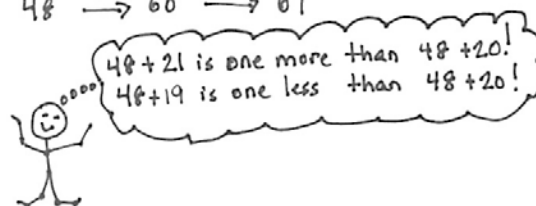 48 → 60 → 61
48+21 is one more than 48+20!
48+19 is one less than 48+20!